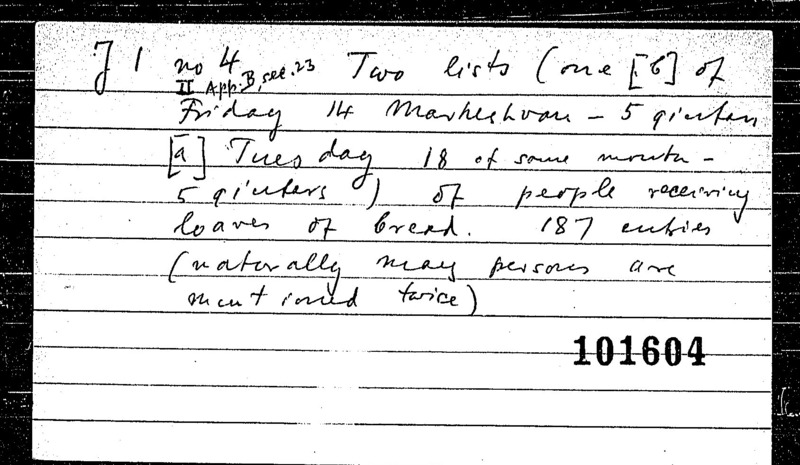 J 1 no 4 Two lists (one [b] of
II App. B, sec. 23
Friday 14 Marheshvan - 5 qintars
[a] Tuesday 18 of same month -
5 qintars) of people receiving
loaves of bread. 187 entries
(naturally many persons are
mentioned twice)
101604